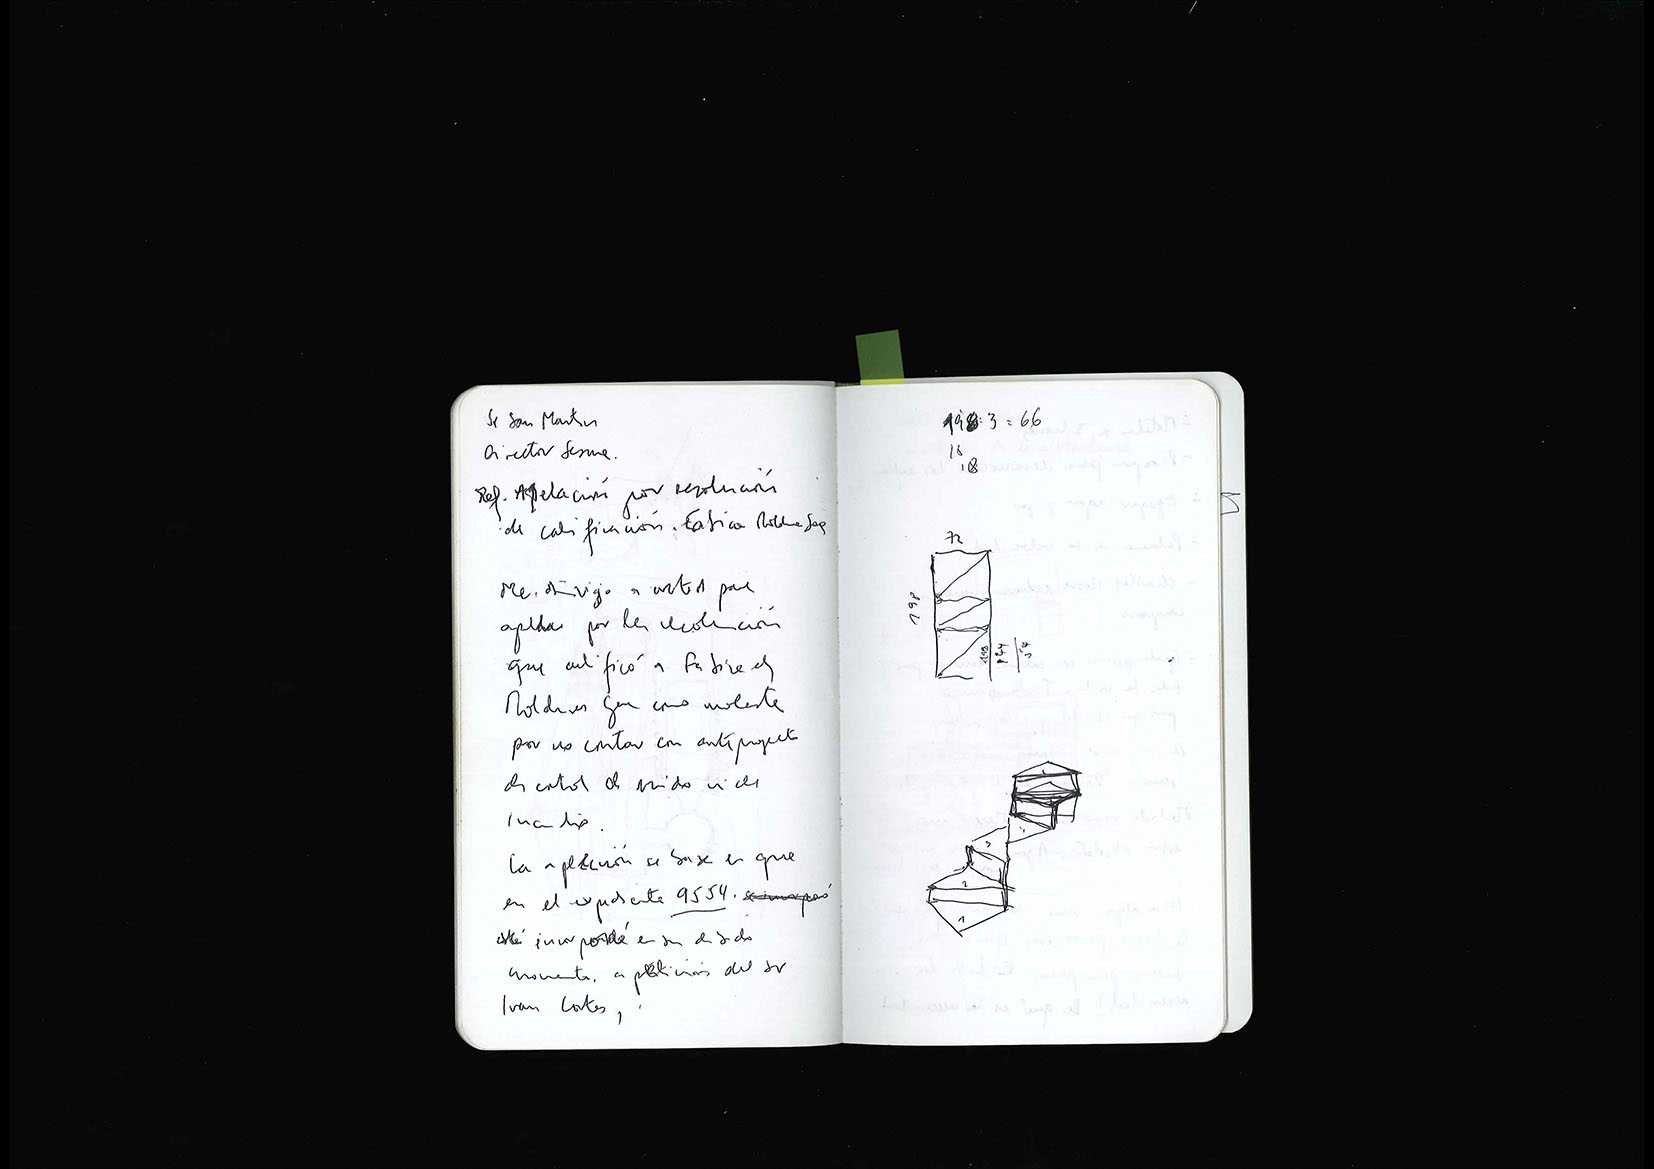 Sr San Martin
Director Sesma.
Ref. Apelación por resolución
de calificación. Fabrica Moldura
Me dirijo a usted para
apelar por la resolución
que calificó a Fabrica de
Molduras como molesta
por no contar con anteproyecto
de control de ruido ni de
incendio.
La apelación se basa en que
en el expediente 9554.
incorporé en su debido
momento, a petición del sr
Ivan Cortes,
198:3=66
18
18
72
198
198
144
54
3
2
1